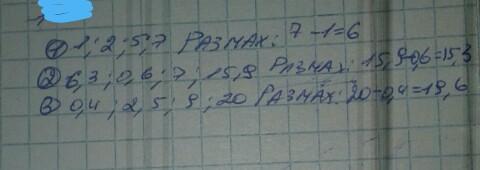 ① 1; 2; 5; 7 РАЗМАХ: 7-1=6
② 6,3; 0,6; 7; 15,9 РАЗМАХ: 15,9-0,6=15,3
③ 0,4; 2,5; 9; 20 РАЗМАХ: 20-0,4=19,6